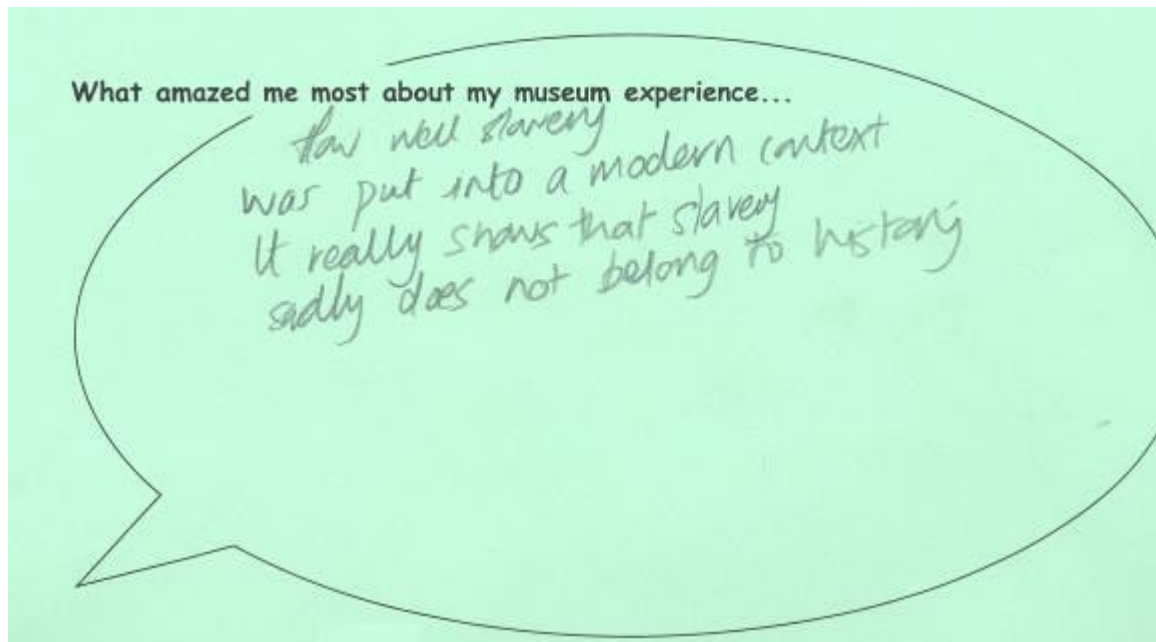 What amazed me most about my museum experience...
How well slavery
was put into a modern context
It really shows that slavery
sadly does not belong to history